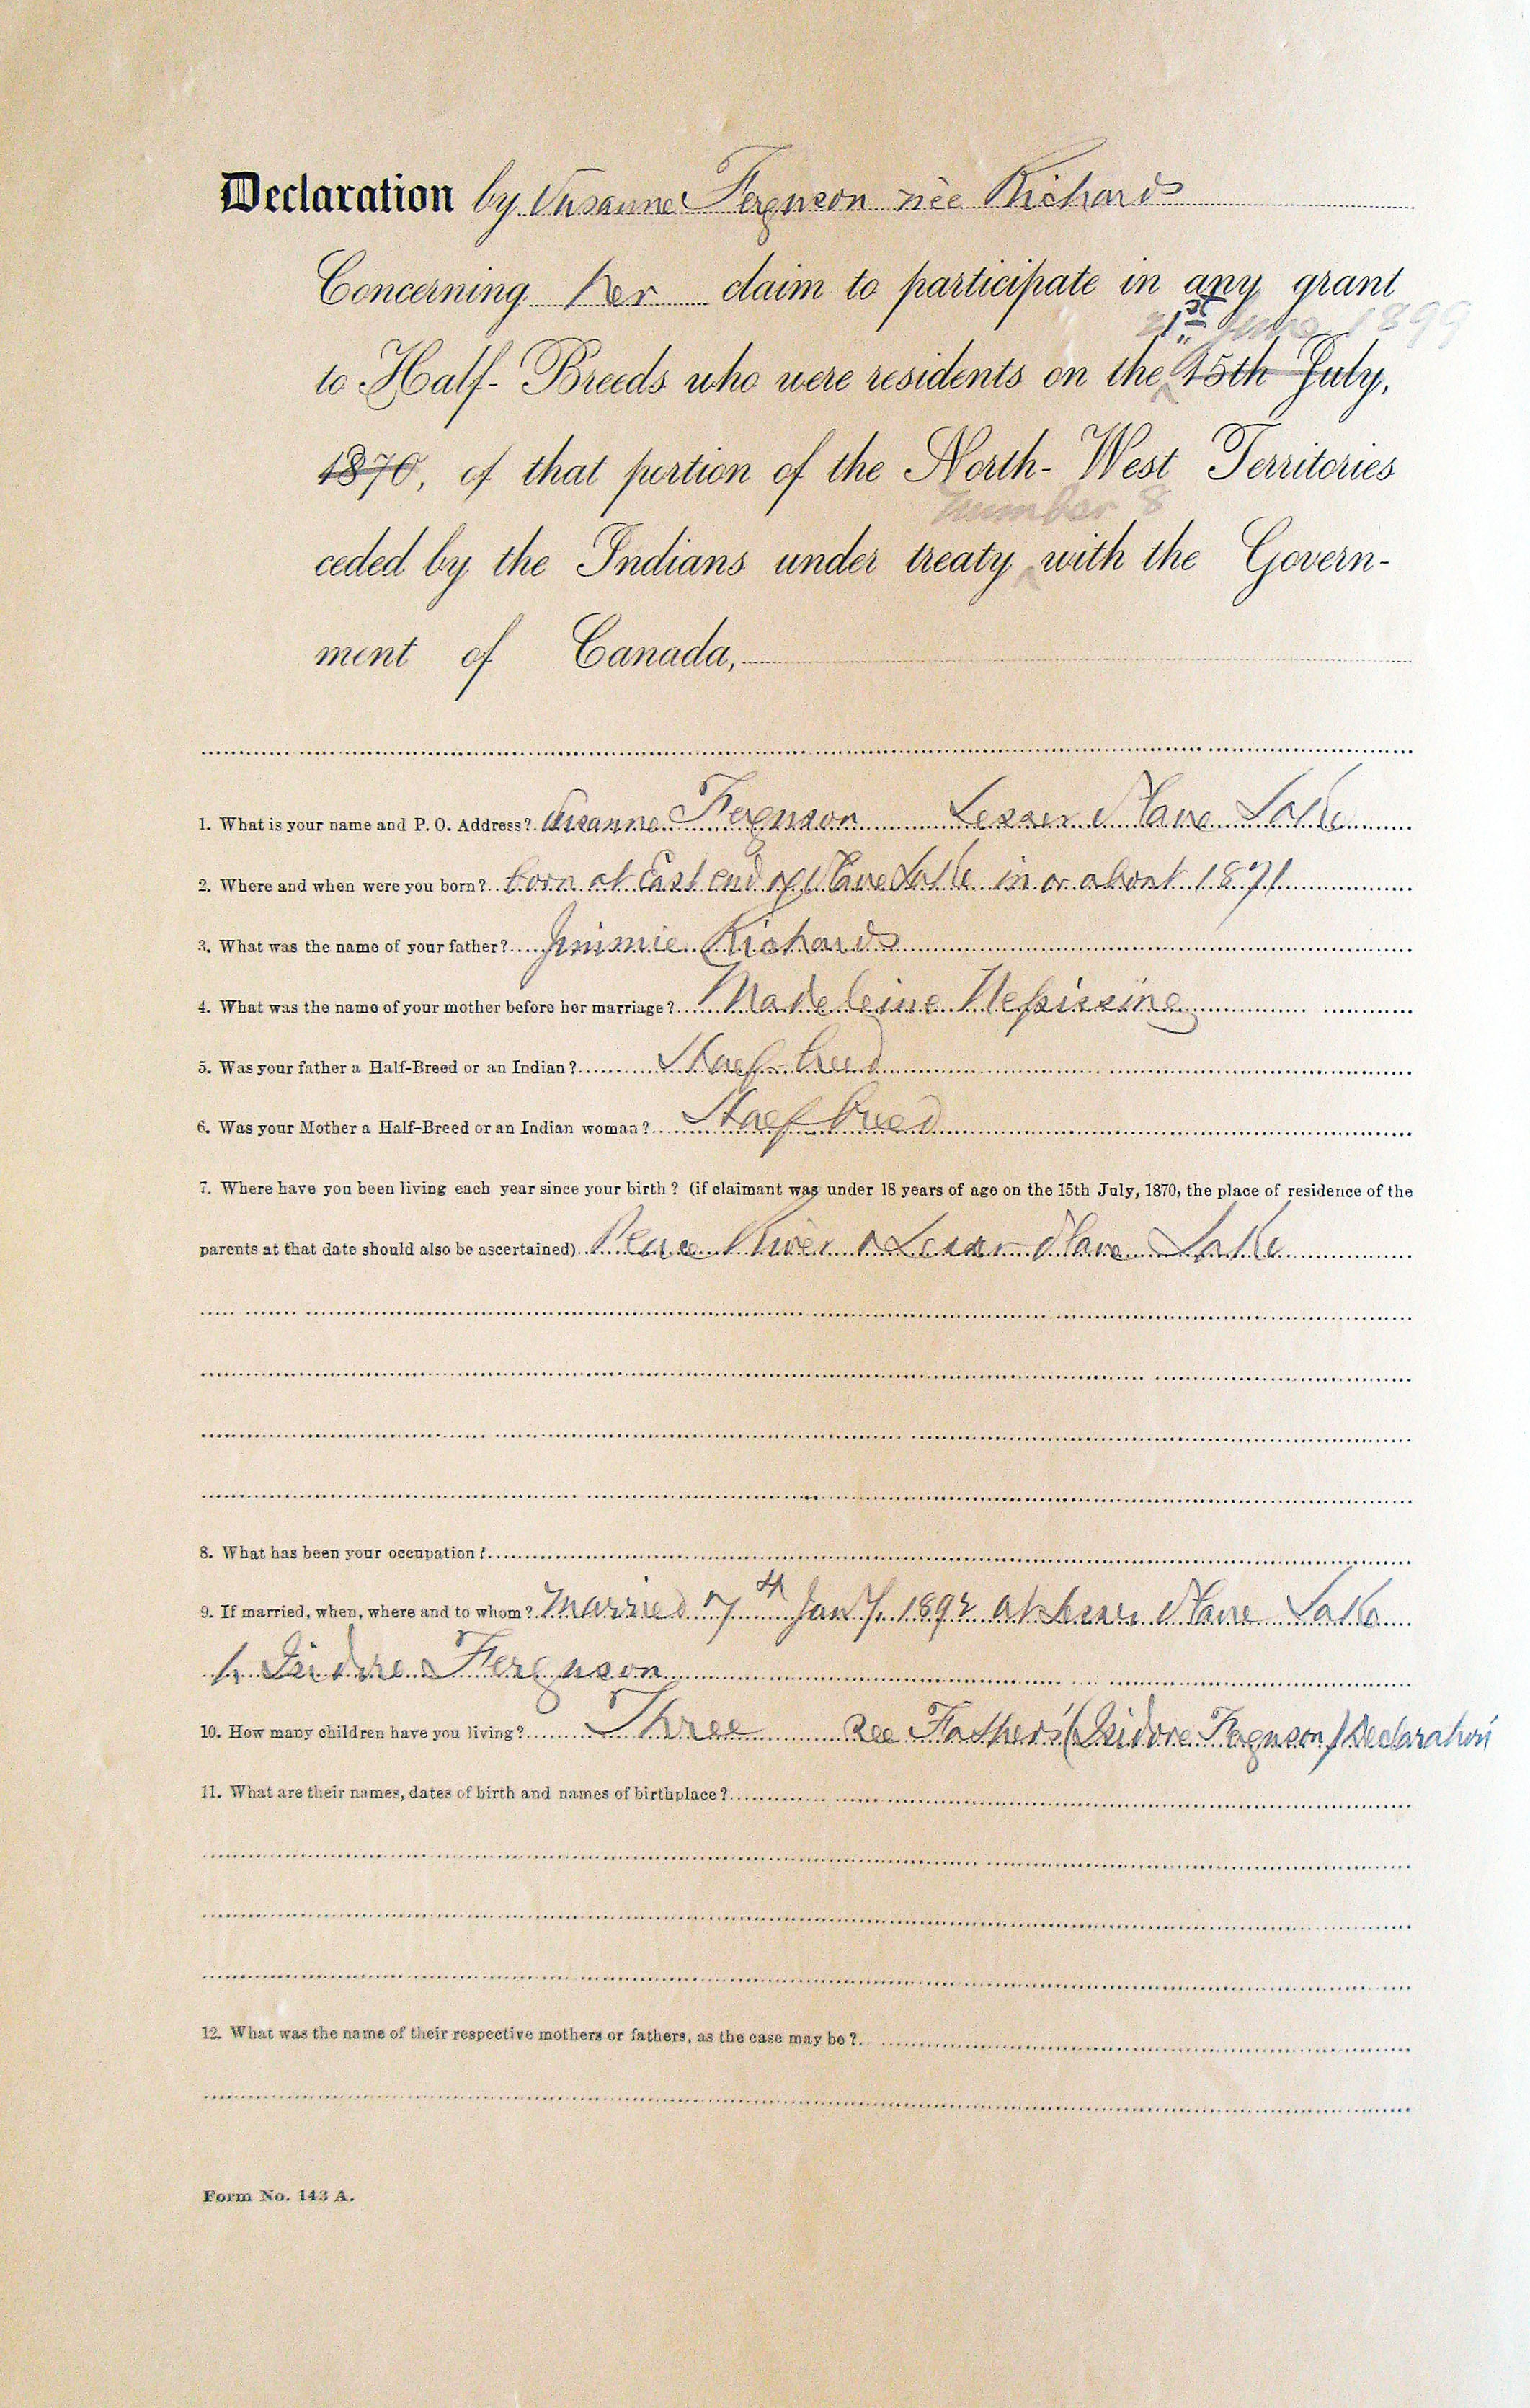 Declaration by Susanne Ferguson née Richards
Concerning her claim to participate in any grant
21st June 1899
to Half-Breeds who were residents on the 15th July,
1870, of that portion of the North-West Territories
number 8
ceded by the Indians under treaty with the Govern-
ment of Canada,
1. What is your name and P. O. Address? Susanne Ferguson Lesser Slave Lake
2. Where and when were you born? born at East end of Slave Lake in or about 1871
3. What was the name of your father? Jimmie Richards
4. What was the name of your mother before her marriage? Madeleine Nepissing
5. Was your father a Half-Breed or an Indian? Half-breed
6. Was your Mother a Half-Breed or an Indian woman? Half-breed
7. Where have you been living each year since your birth? (if claimant was under 18 years of age on the 15th July, 1870, the place of residence of the
parents at that date should also be ascertained) Peace River & Lesser Slave Lake
8. What has been your occupation?
9. If married, when, where and to whom? Married 7th Jany. 1892 at Lesser Slave Lake
to Isidore Ferguson
10. How many children have you living? Three See Father's (Isidore Ferguson) Declaration
11. What are their names, dates of birth and names of birthplace?
12. What was the name of their respective mothers or fathers, as the case may be?
Form No. 143 A.